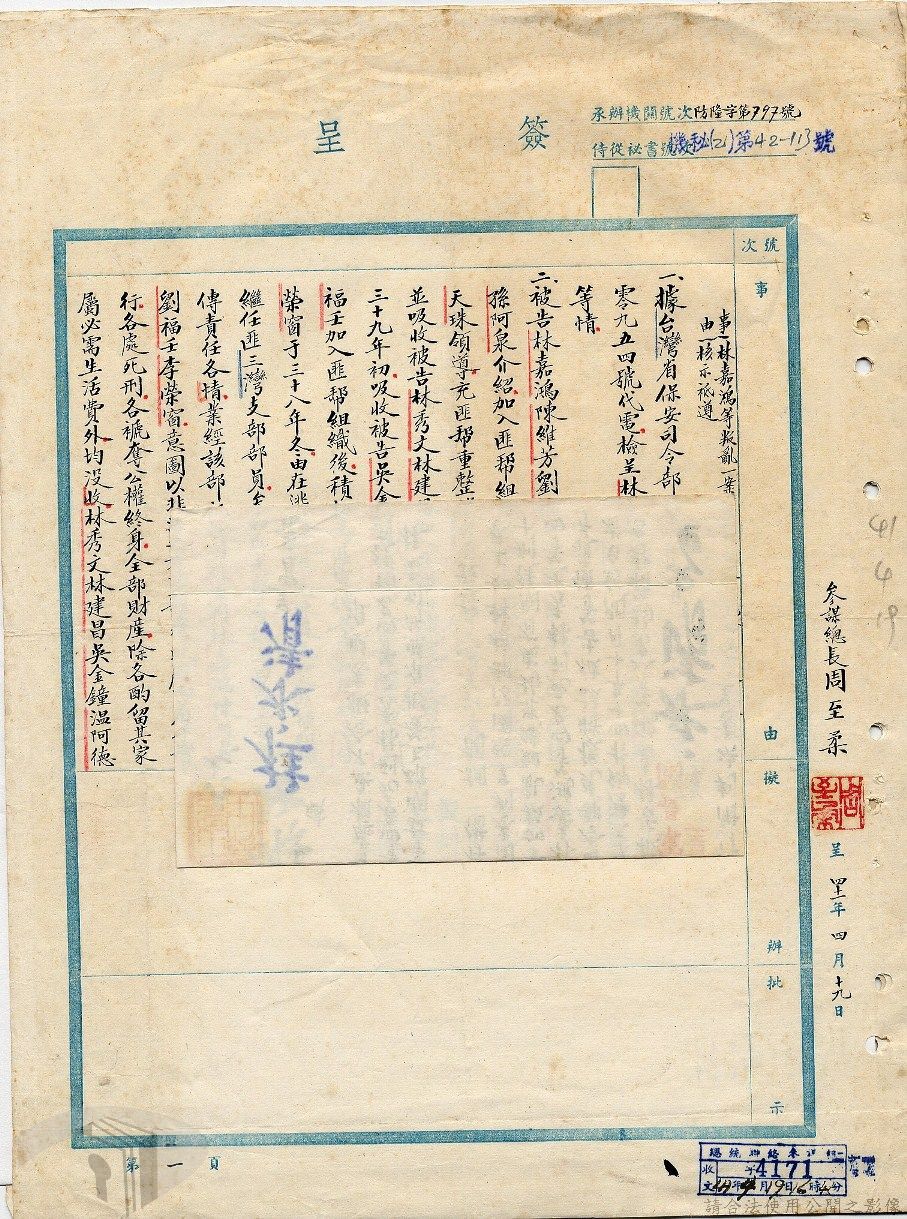 簽呈
承辦機關號次防隆字第797號
侍從祕書號次機秘(乙)第42-113號
號次
事由
擬辦
批示
事由 林嘉鴻等叛亂一案
核示祗遵
一、據台灣省保安司令部
零九五四號代電檢呈林
等情
二、被告林嘉鴻陳維芳劉
孫阿泉介紹加入匪幫組
天珠領導充匪幫重整
並吸收被告林秀文林建
三十九年初吸收被告吳金
福壬加入匪幫組織後積
榮窗于三十八年冬由在逃
繼任匪三灣支部部員
傳責任各情業經該部
劉福壬李榮窗意圖以非
行各處死刑各褫奪公權終身全部財產除各酌留其家
屬必需生活費外均沒收林秀文林建昌吳金鐘溫阿德
參謀總長周至柔
呈 四十一年四月十九日
41
4
19
第一頁
收文
4171
請合法使用公開之影像